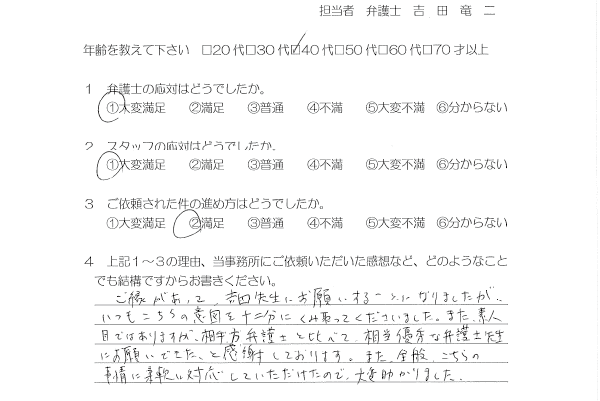 担当者 弁護士 吉田 竜二
年齢を教えて下さい □20代□30代□40代□50代□60代□70才以上
1 弁護士の応対はどうでしたか。
①大変満足 ②満足 ③普通 ④不満 ⑤大変不満 ⑥分からない
2 スタッフの応対はどうでしたか。
①大変満足 ②満足 ③普通 ④不満 ⑤大変不満 ⑥分からない
3 ご依頼された件の進め方はどうでしたか。
①大変満足 ②満足 ③普通 ④不満 ⑤大変不満 ⑥分からない
4 上記1～3の理由、当事務所にご依頼いただいた感想など、どのようなこと
でも結構ですからお書きください。
ご縁があって、吉田先生にお願いすることになりましたが、
いつもこちらの意図を十二分にくみ取ってくださいました。また、素人
目ではありますが、相手方弁護士と比べて、相当優秀な弁護士先生
にお願いできた、と感謝しております。また、全般、こちらの
事情に柔軟に対応していただけたので、大変助かりました。